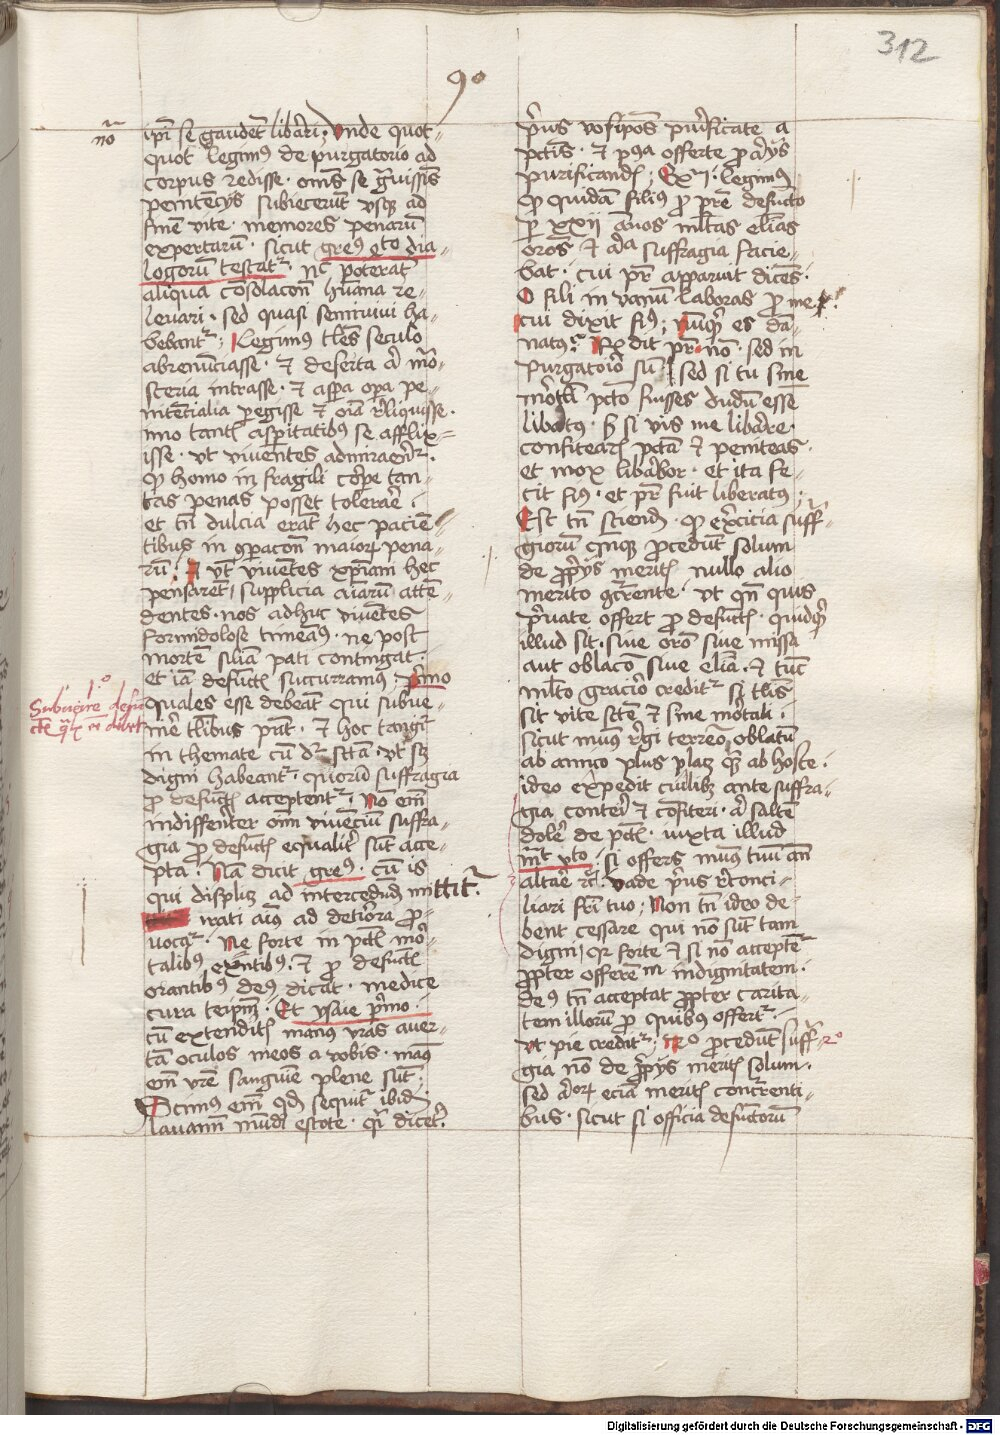 312
90
no
ipi se gaudet libari. Unde quot-
quot legimus de purgatorio ad
corpus redisse. omes se gravissis
penitencijs subiecerut usque ad
fine vite. memores penaru
expertaru. sicut greg 4to dia-
logoru testatur. nec poterat
aliqua consolacon humana re-
levari. sed quasi semivivi ha-
bebantur. Legimus tales seculo
abrenunciasse. et deserta ac mo-
steria intrasse. et aspa opa pe-
nitentialia peregisse et oia reliquisse.
imo tantis aspitatibus se afflix-
isse. ut viventes admirarentur.
quod homo in fragili corpe tan-
tas penas posset tolerare.
et tn dulcia erat hec pacien-
tibus in comparacon maior pena-
ru. Et ut viventes xpiani hec
pensaret supplicia avaru atten-
dentes. nos adhuc viventes
formidolose timeamus. ne post
morte silia pati contingat.
et ia defunctis succurramus. primo
1o
Subvenire defu
ctis qualis debet
quales esse debeat qui subve-
nire talibus pnt. et hoc tangitur
in themate cu dr scta. ut scilicet
digni habeantur. quoru suffragia
pro defunctis acceptentur. Non eni
indifferenter oim vivenciu suffra-
gia pro defunctis equaliter sut acce-
pta. Na dicit greg. cum is
qui displicet ad intercedendum mittitur.
irati aius ad deteriora pro-
vocatur. Ne forte in pctis mor-
talibus exntibus. et pro defunctis
orantibus deus dicat. medice
cura teipsum. Et ysaie primo.
cu extenditis manus vras aver-
tam oculos meos a vobis. manus
eni vre sanguine plene sut.
Scimus eni quod sequitur ibid
lavamini mundi estote. quasi diceret.
prius vosipos purificate a
pctis. et postea offerte pro alijs
purificandis. Ex. legimus
quod quida filius pro pre defucto
per xxxii annos multas elias
oros et alia suffragia facie-
bat. cui pr apparuit dices.
O fili in vanu laboras pro me.
cui dixit fius. nuquid es da-
natus. Rndit pr. no. sed in
purgatorio su. sed si tu sine
mortali pcto fuisses dudu esse
libatus. sed si vis me libare.
confitearis pcta et peniteas.
et mox libabor. et ita fe-
cit fius. et pr fuit liberatus.
Est tn sciend. quod exercicia suffra-
gioru quinque procedut solum
de proprijs meritis nullo alio
merito concurrente. ut qn quis
private offert pro defunctis. quidquid
illud sit. sive oro sive missa
aut oblaco sive elia. et tunc
multo graciosior creditur si talis
sit vite scte et sine mortali.
sicut munus regi terreo oblatu
ab amico plus placet quam ab hoste.
ideo expedit cuilibet ante suffra-
gia conteri et confiteri. ac salte
dolere de pctis. iuxta illud
mt vto. si offers munus tuu an
altare etc. vade prius reconci-
liari fri tuo. Non tn ideo de-
bent cessare qui non sut tam
digni quia forte et si no acceptetur
propter offerentium indignitatem.
deus tn acceptat propter carita-
tem illorum pro quibus offertur.
ut pie creditur. 2o procedut suffra-
2o
gia no de proprijs meritis solum.
sed alior eciam meritis concurrenti-
bus. sicut si officia defunctorum
Digitalisierung gefördert durch die Deutsche Forschungsgemeinschaft - DFG